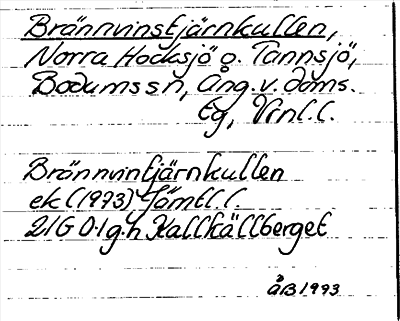 Brännvinstjärnkullen,
Norra Hocksjö o. Tannsjö,
Bodums sn, Ång. v. doms.
Eg, Vrnl. l.
Brännvintjärnkullen
ek (1973) Jämtl. l.
21G 0-1 g.h Kallkällberget
ÅB 1993